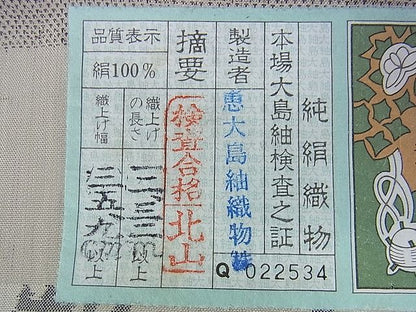 純絹織物
本場大島紬検査之証
Q 022534
製造者
恵大島紬織物㈱
摘要
検査合格 北山
品質表示
絹100%
織上げの長さ
一二、三三m以上
織上げ幅
三五、九cm以上